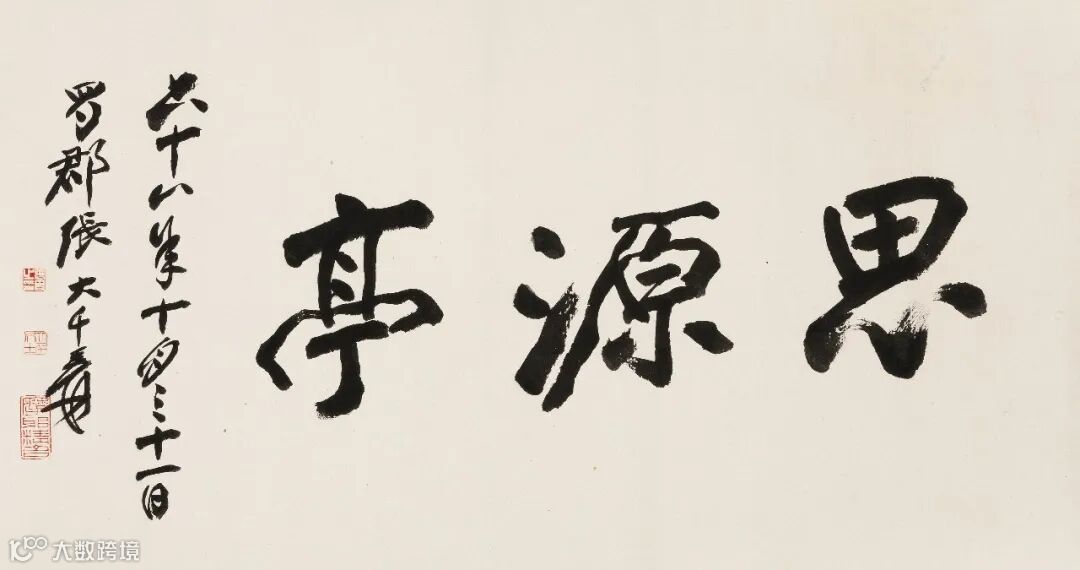 思源亭
六十八年十月三十一日
蜀郡張大千爰
大数跨境